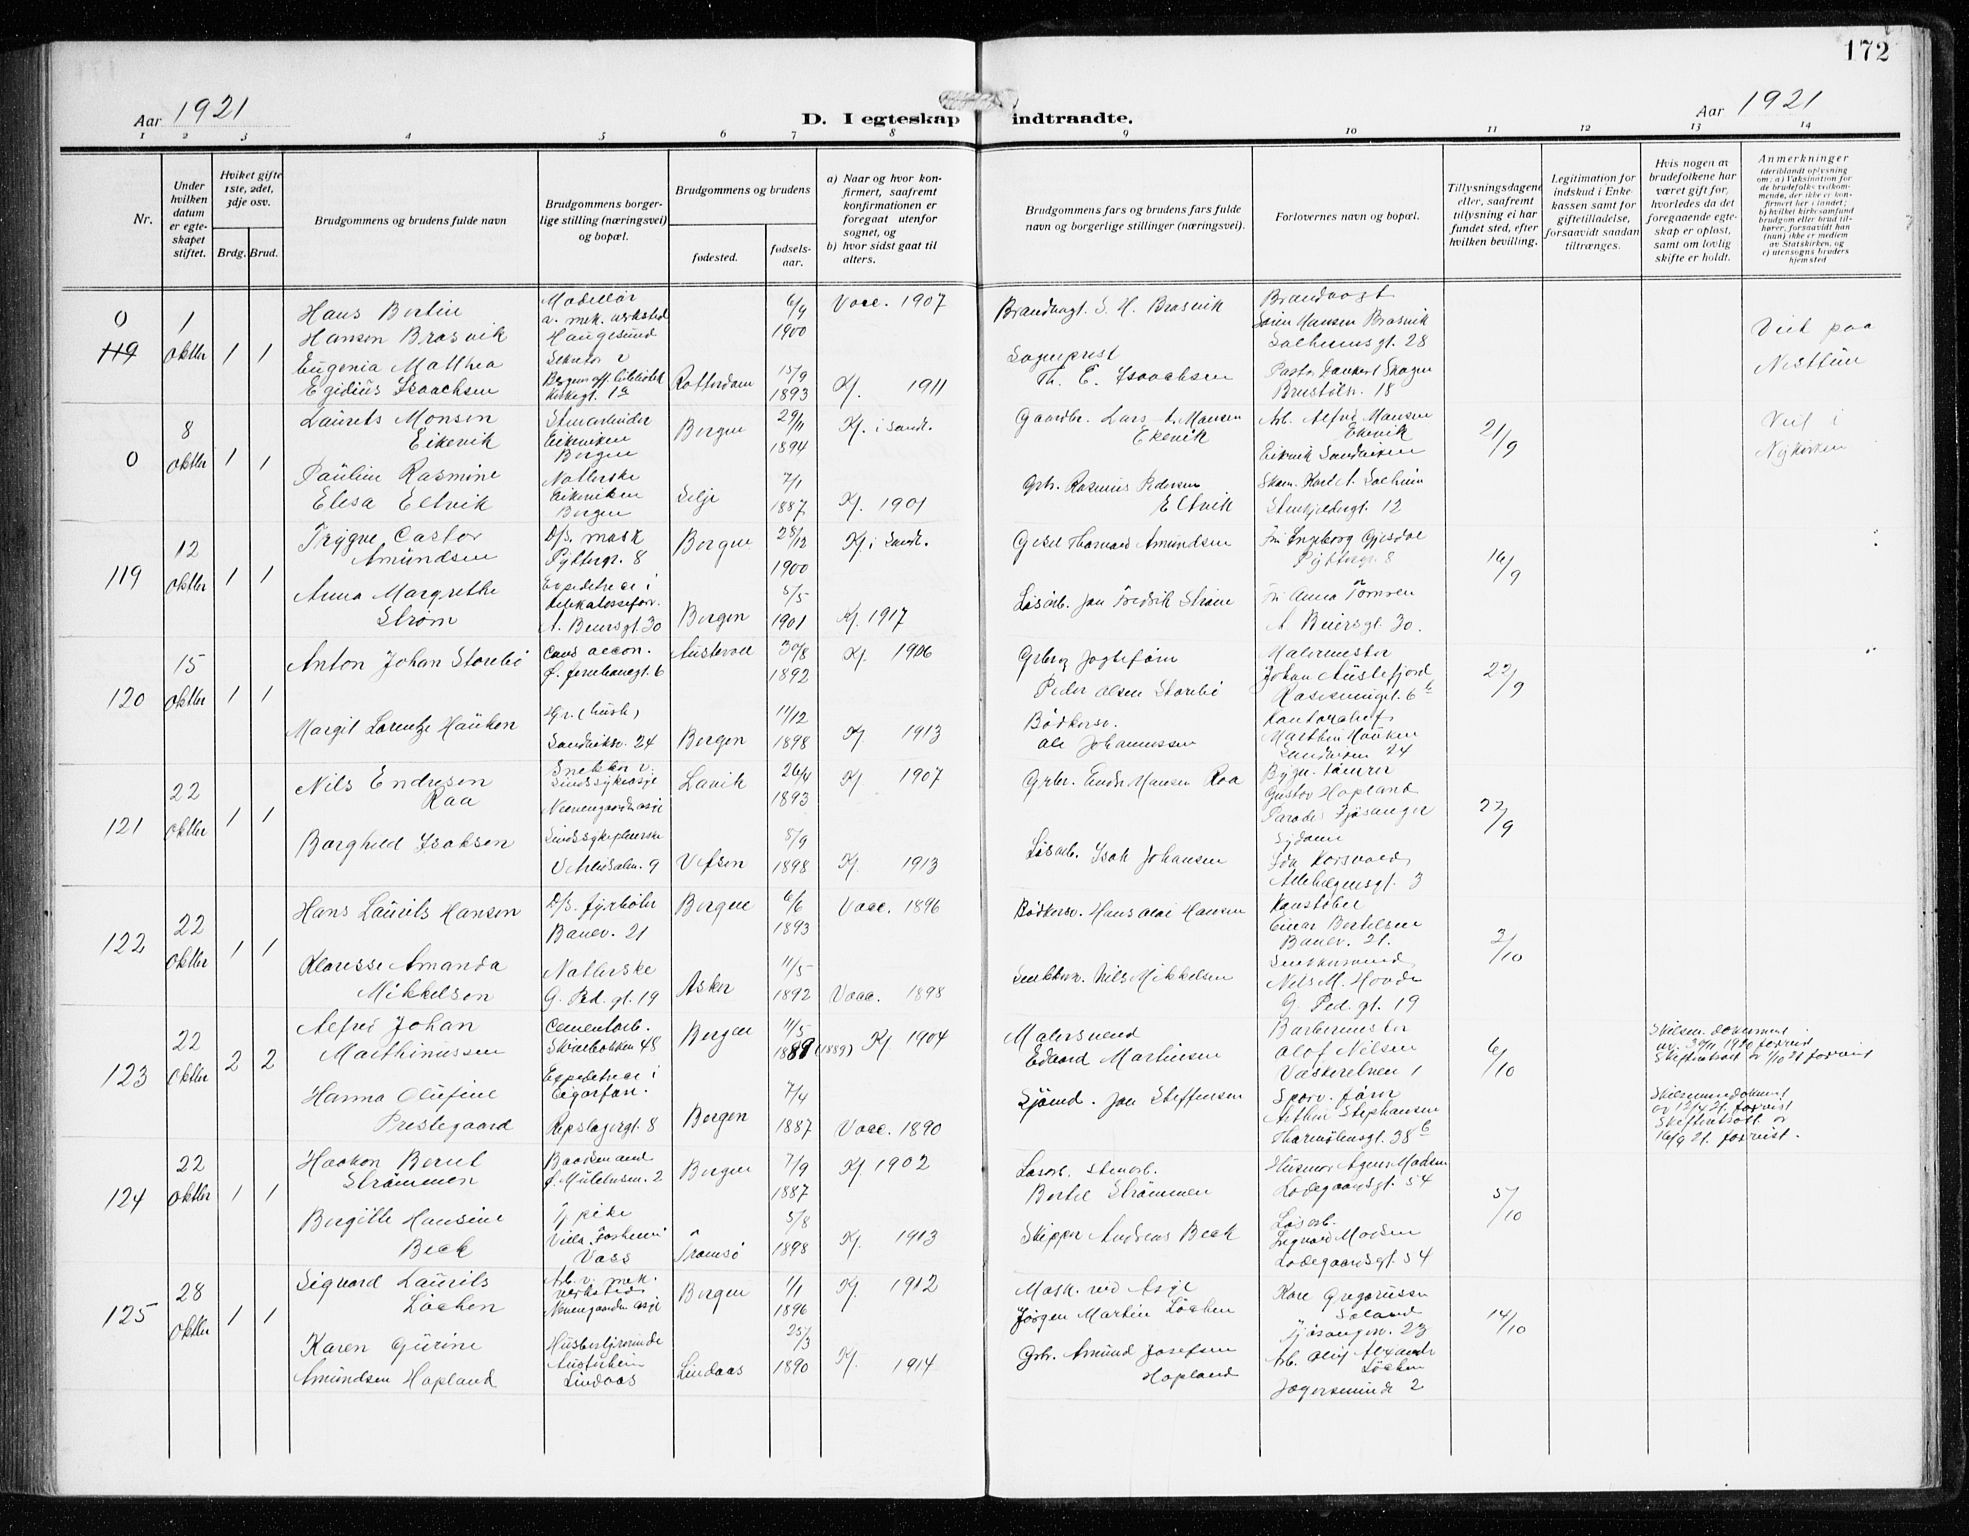 172
Aar 1921
D. I egteskap indtraadte.
Aar 1921
1 2 3 4 5 6 7 8 9 10 11 12 13 14
Nr.
Under
hvilken
datum
er egte-
skapet
stiftet.
Hviket gifte
1ste, 2det,
3dje osv.
Brdg. Brud.
Brudgommens og brudens fulde navn
Brudgommens borger-
lige stilling (næringsvei)
og bopæl.
Brudgommens og brudens
fødested.
fødsels-
aar.
a) Naar og hvor kon-
firmert, saafremt
konfirmationen er
foregaat utenfor
sognet, og
b) hvor sidst gaat til
alters.
Brudgommens fars og brudens fars fulde
navn og borgerlige stillinger (næringsvei).
Forlovernes navn og bopæl.
Tillysningsdagene
eller, saafremt
tillysning ei har
fundet sted, efter
hvilken bevilling.
Legitimation for
indskud i Enke-
kassen samt for
giftetilladelse,
forsaavidt saadan
tiltrænges.
Hvis nogen av
brudefolkene har
været gift før,
hvorledes da det
foregaaende egte-
skap er opløst,
samt om lovlig
skifte er holdt.
Anmerkninger
(deriblandt oplysning
om: a) Vaksination for
de brudefolks vedkom-
mende, der ikke er kon-
firmert her i landet;
b) hvilket kirkesamfund
brudgom eller brud til-
hører, forsaavidt han
(hun) ikke er medlem
av Statskirken, og
c) utensogns bruders
hjemsted
0
119
1
oktbr 1 1
Hans Bertin
Hansen Brosvik
Modellør
v. mek. verksted
Haugesund
6/9
1900
Vocc. 1907
Brandvagt. S. H. Brosvik
Brandvagt
Søren Hansen Brosvik
Solheimsgt. 28
Viet paa
Nesttun
Eugenia Mathea
Egidius Isaachsen
Sekretær v
Bergens off bibliotek
Kirkegt. 1a
Rotterdam
15/9
1893
Kj. 1911
Sogneprest
Th. E. Isaachsen
Pastor Dankert Skagen
18
0
8
oktbr 1 1
Laurits Monsen
Eikevik
Eikeviken
Bergen
Bergen
29/11
1894
Kj. i Sandv.
Gaardbr. Lars A. Mansen
Ekevik
Arb. Alfred Mansen
Ekevik
Eikevik Sandviken
21/9
Viet i
Nykirken
Pauline Rasmine
Elisa Eltvik
Natterske
Eikeviken
Bergen
Selje
7/1
1887
Kj. 1901
Grbr. Rasmus Pedersen
Eltvik
Skom. Karl A. Solheim
Stenkjeldergt. 12
119
12
oktbr 1 1
Trygve Castor
Amundsen
D/S. mask
Pyttergt. 8
Bergen
28/12
1900
Kj. i Sandv.
Gisel Thorvald Amundsen
Fru Ingeborg Gjesdal
Pyttergt. 8
16/9
Anna Margrethe
Strøm
Expeditrice i
delikatesseforr.
A. Beiersgt. 30
Bergen
5/5
1901
Kj. 1917
Løsarb. Jan Fredrik Strøm
Fru Anna Tornsen
A Beiersgt. 30.
120
15
oktbr 1 1
Anton Johan Storebø
6
Austevoll
30/8
1892
Kj 1906
Grbr. og Jagtefører
Peder Olsen Storebø
Malermester
Johan Austefjord
22/9
Margit Lorentze Haukon
Sandviksv. 24
Bergen
11/12
1898
Kj 1913
Bødkersv.
Ole Johannessen
Kontorchef
Marthin Hauken
Sandviksv 24
121
22
oktbr 1 1
Nils Endreson
Raa
Snekker v.
Sindssykeasyl
Neevengaarden asyl
Lavik
26/4
1893
Kj 1907
Grbr. Endre Hansen Raa
Bygn. tømrer
Gustav Hopland
Paradis Fjøsanger
22/9
Borghild Isaksen
Sindssykepleierske
9
Vefsen
5/9
1898
Kj. 1913
Løsarb. Isak Johansen
Sydame
Ida Korsvold
Allehelgensgt. 3
122
22
oktbr 1 1
Hans Laurits Hansen
D/S. fyrbøter
Banev. 21
Bergen
6/6
1893
Vocc. 1896
Bødkersv. Hans Olai Hansen
Kanstøber
Einar Bertelsen
Banev. 21.
3/10
Klarisse Amanda
Mikkelsen
Natterske
G. Ped. gt. 19
Asker
11/5
1892
Vocc. 1898
Snekkersv. Nils Mikkelsen
Snekkersvend
Nils M. Hovde
G. Ped. gt. 19
123
22
oktbr 2 2
Alfred Johan
Marthinussen
Cementarb.
Skivebakken 48
Bergen
11/5
1889 (1889)
Kj 1904
Malersvend
Edvard Martinsen
Barbermester
Olaf Nilsen
Vaskerelven 1
6/10
Skilsm. dokument
av 30/11 1920 forevist
Skifteattest av 1/10 21 forevist
Hanna Olufine
Prestegaard
Expeditrice i
Sigarforr.
Repslagergt. 8
Bergen
7/4
1887
Vocc. 1890
Sjømd. Jan Steffensen
Sporv. fører
Arthur Stephansen
38 b
Skilsmissedokument
av 12/4 21. forevist
Skifteattest av
16/9 21. forevist.
124
22
oktbr 1 1
Haakon Bernt
Strømmen
Baadsmand
2
Bergen
7/9
1887
Kj 1902
Løsarb. stenarb.
Bertel Strømmen
Husmor Agnes Madsen
Lodegaardsgt. 54
5/10
Bergitte Hansine
Beck
Tj. pike
Voss
Tromsø
5/8
1898
Kj. 1913
Skipper Andreas Beck
Løsarb.
Ingvard Madsen
Lodegaardsgt. 54
125
28
oktbr 1 1
Sigvard Laurits
Løchen
Arb. v. mek.
verksted
Neevengaarden asyl
Bergen
1/1
1896
Kj. 1912
Mask. ved Asyl
Jørgen Martin Løchen
Kare Gregorussen
Soland
Fjøsangerv. 23
14/10
Karen Gurine
Amundsen Hopland
Husbestyrerinde
Austrheim
Lindaas
Lindaas
25/3
1890
Kj. 1914
Grbr. Amund Josefsen
Hopland
Arb. Oluf Alexander
Løchen
2